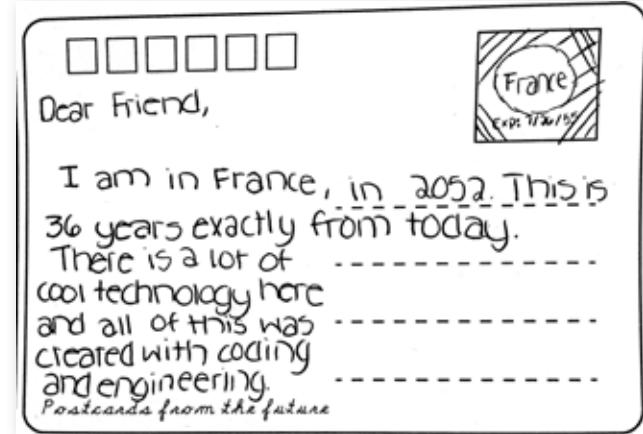 France
Exp: 7/26/55
Dear Friend,
I am in France, in 2052. This is
36 years exactly from today.
There is a lot of
cool technology here
and all of this was
created with coding
and engineering.
Postcards from the future